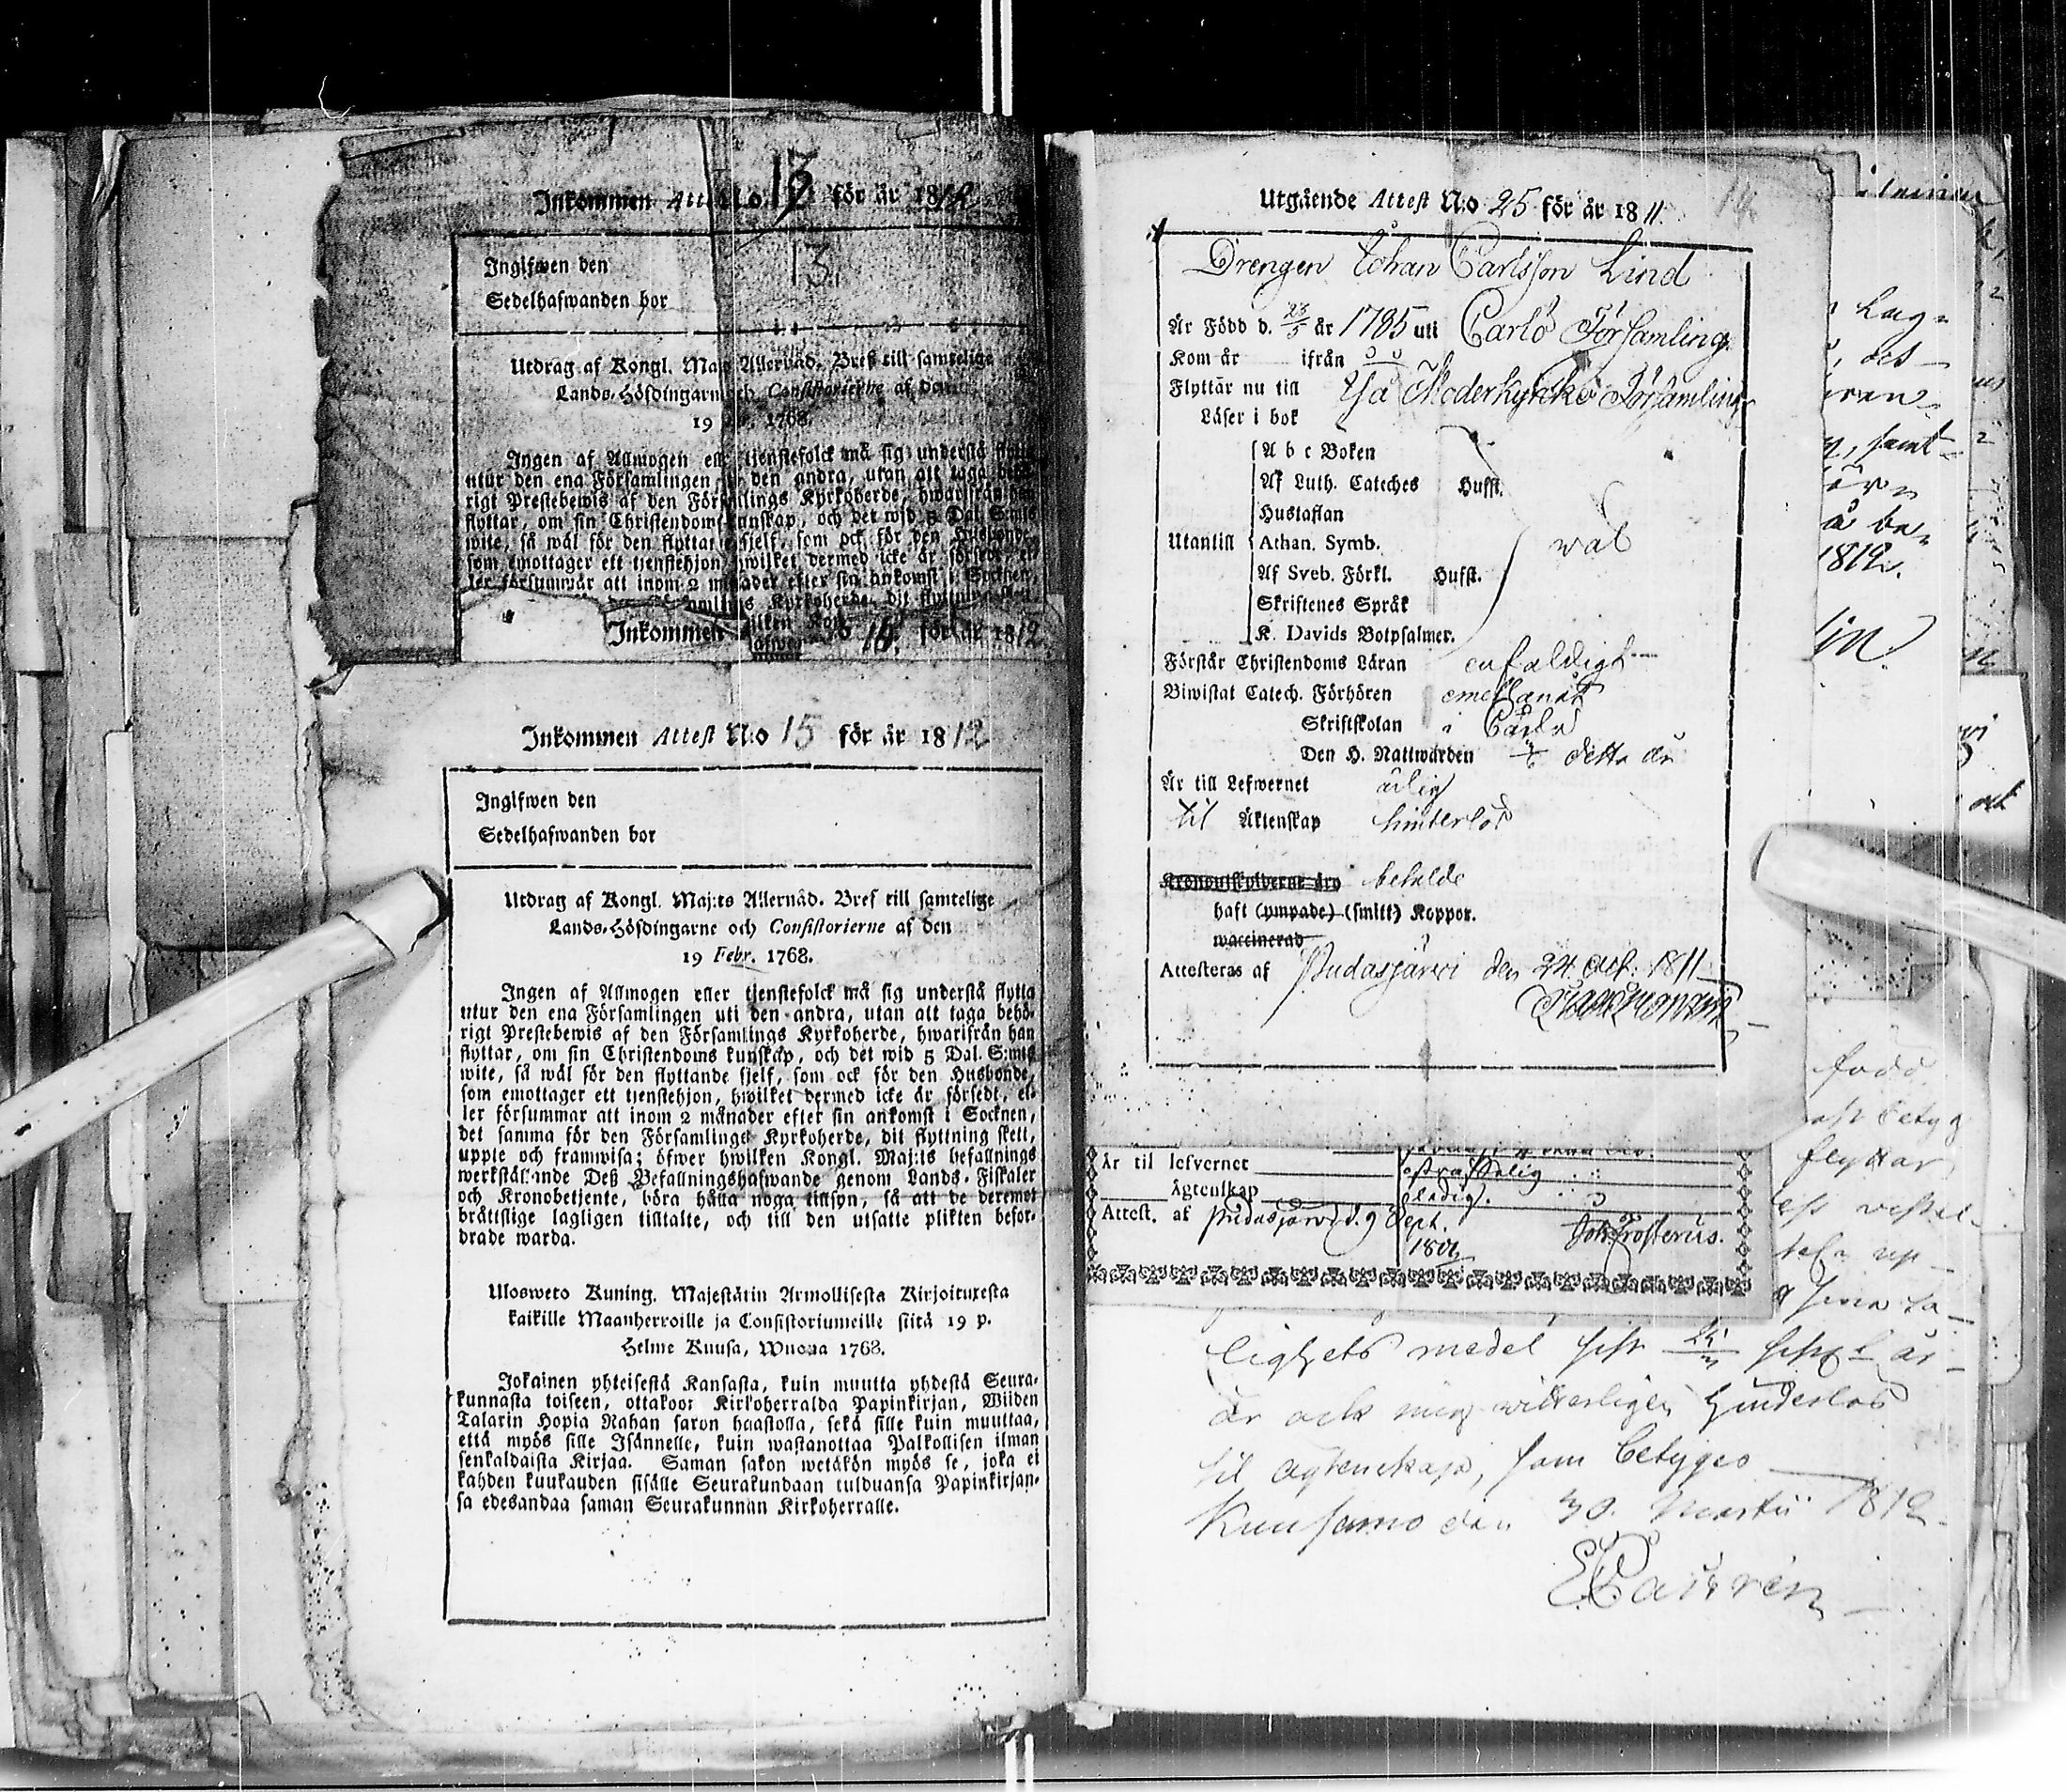 Inkommen Att. N:o 13. för år 1812
Ingifwen den 13.
Sedelhafwanden bor
Utdrag af Kongl. Maj Allernåd. Bref till samtelige
Lands-Höfdingarn och Consistorierne af den
19 1768.
Ingen af Allmogen ell tjenstefolck må sig understå flytta
utur den ena Församlingen den andra, utan att taga behö-
rigt Prestebewis af den Församlings Kyrkoherde, hwarifrån han
flyttar, om sin Christendoms kunskap, och det wid 5 Dal. S:mts
wite, så wäl för den flyttande sjelf, som ock för den Husbonde,
som emottager ett tjenstehjon, hwilket dermed icke är försedt, el-
ler försummar att inom 2 månader efter sin ankomst i Socknen,
Kyrkoherde, dit flyttning
Inkommen 14. för år 1812.
Inkommen Attest N:o 15 för år 1812
Ingifwen den
Sedelhafwanden bor
Utdrag af Kongl. Maj:ts Allernåd. Bref till samtelige
Lands-Höfdingarne och Consistorierne af den
19 Febr. 1768.
Ingen af Allmogen eller tjenstefolck må sig understå flytta
utur den ena Församlingen uti den andra, utan att taga behö-
rigt Prestebewis af den Församlings Kyrkoherde, hwarifrån han
flyttar, om sin Christendoms kunskap, och det wid 5 Dal. S:mts
wite, så wäl för den flyttande sjelf, som ock för den Husbonde,
som emottager ett tjenstehjon, hwilket dermed icke är försedt, el-
ler försummar att inom 2 månader efter sin ankomst i Socknen,
det samma för den Församlings Kyrkoherde, dit flyttning skett,
uppte och framwisa; öfwer hwilken Kongl. Maj:ts befallnings
werkställande Deß Befallningshafwande genom Lands-Fiskaler
och Kronobetjente, böra hålla noga tillsyn, så att de deremot
bråttslige lagligen tilltalte, och till den utsatte plikten befor-
drade warda.
Ulosweto Kuning. Majestätin Armollisesta Kirjoituxesta
kaikille Maanherroille ja Consistoriumeille siitä 19 p.
Helme Kuusa, Wuonna 1768.
Jokainen yhteisestä Kansasta, kuin muutta yhdestä Seura-
kunnasta toiseen, ottakoon Kirkoherralda Papinkirjan, Wiiden
Talarin Hopia Rahan saxon haastolla, sekä sille kuin muuttaa,
että myös sille Isännelle, kuin wastanottaa Palkollisen ilman
senkaldaista Kirjaa. Saman sakon wetäkön myös se, joka ei
kahden kuukauden sisälle Seurakundaan tulduansa Papinkirjan-
sa edesandaa saman Seurakunnan Kirkoherralle.
Utgående Attest N:o 25 för år 1811.
14.
Drengen Johan Carlsson Lind
Är Född d. 23/5 år 1785 uti Carlö Församling
Kom år ifrån
Flyttar nu till Moderkyrko Församling
Läser i bok
A b c Boken
Af Luth. Cateches Husst.
Hustaflan
Utantill Athan. Symb. wäl
Af Sveb. Förkl. Husst.
Skriftenes Språk
K. Davids Botpsalmer.
Förstår Christendoms Läran enfaldigt
Biwistat Catech. Förhören emellanåt
Skriftskolan i Carlö
Den H. Nattwarden detta år
Är till Lefwernet ärlig
til Äktenskap hinderlös
Kronoutskylderne äro betalde
haft (ympade) (smitt) Koppor.
waccinerad
Attesteras af Pudasjärwi den 24 Oct: 1811
Är til lefvernet
Ägtenskap ledig.
Attest. af Pudasjärwi d. 9 Sept.
Joh. Frosterus.
lighets medel sist
är ock mig witterligen hinderlös
til ägtenskap, som betyges
Kuusamo den 30. Martii 1812
född
betyg
flyttar
samt
1812.